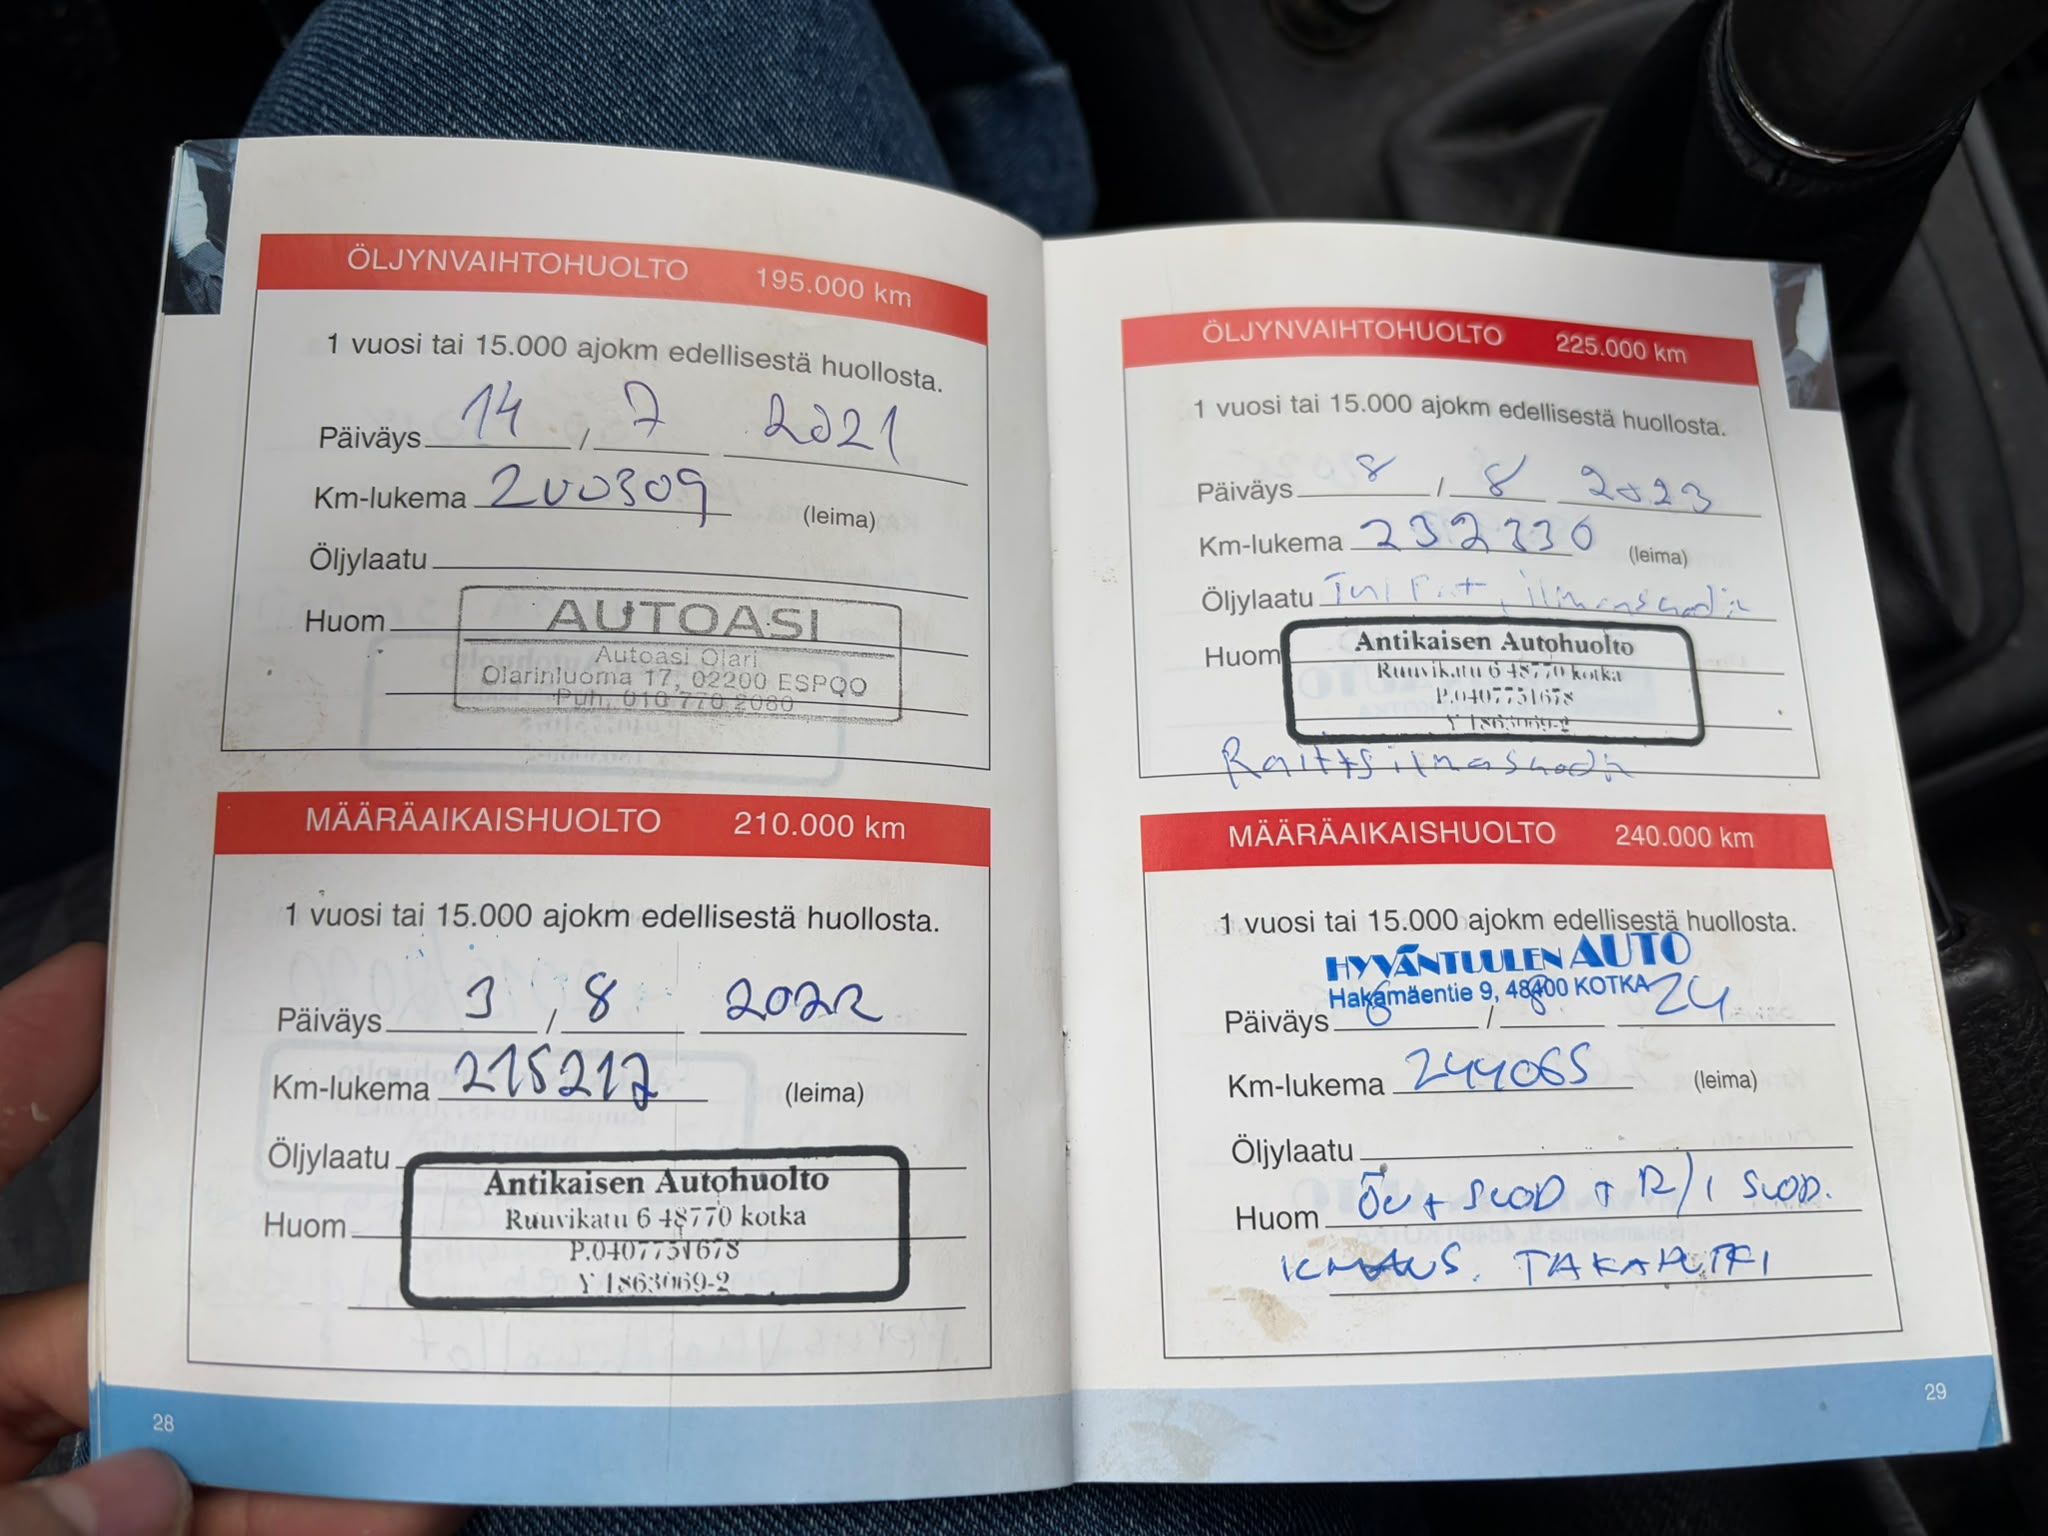 ÖLJYNVAIHTOHUOLTO 195.000 km
1 vuosi tai 15.000 ajokm edellisestä huollosta.
Päiväys 14 / 7 2021
Km-lukema 200309 (leima)
Öljylaatu
Huom
AUTOASI
Autoasi Olari
Olarinluoma 17, 02200 ESPOO
Puh. 010 770 2080
MÄÄRÄAIKAISHUOLTO 210.000 km
1 vuosi tai 15.000 ajokm edellisestä huollosta.
Päiväys 3 / 8 2022
Km-lukema 215217 (leima)
Öljylaatu
Huom
Antikaisen Autohuolto
Ruuvikatu 6 48770 kotka
P.0407751678
Y 1863069-2
28
ÖLJYNVAIHTOHUOLTO 225.000 km
1 vuosi tai 15.000 ajokm edellisestä huollosta.
Päiväys 8 / 8 2023
Km-lukema 232330 (leima)
Öljylaatu Tulpat, ilmansuodin
Huom
Antikaisen Autohuolto
Ruuvikatu 6 48770 kotka
P.0407751678
Y 1863069-2
MÄÄRÄAIKAISHUOLTO 240.000 km
1 vuosi tai 15.000 ajokm edellisestä huollosta.
HYVÄNTUULEN AUTO
Hakamäentie 9, 48400 KOTKA
Päiväys 6 / 8 24
Km-lukema 244065 (leima)
Öljylaatu
Huom ÖV + SUOD + R/I SUOD.
TAKAPUTKI
29